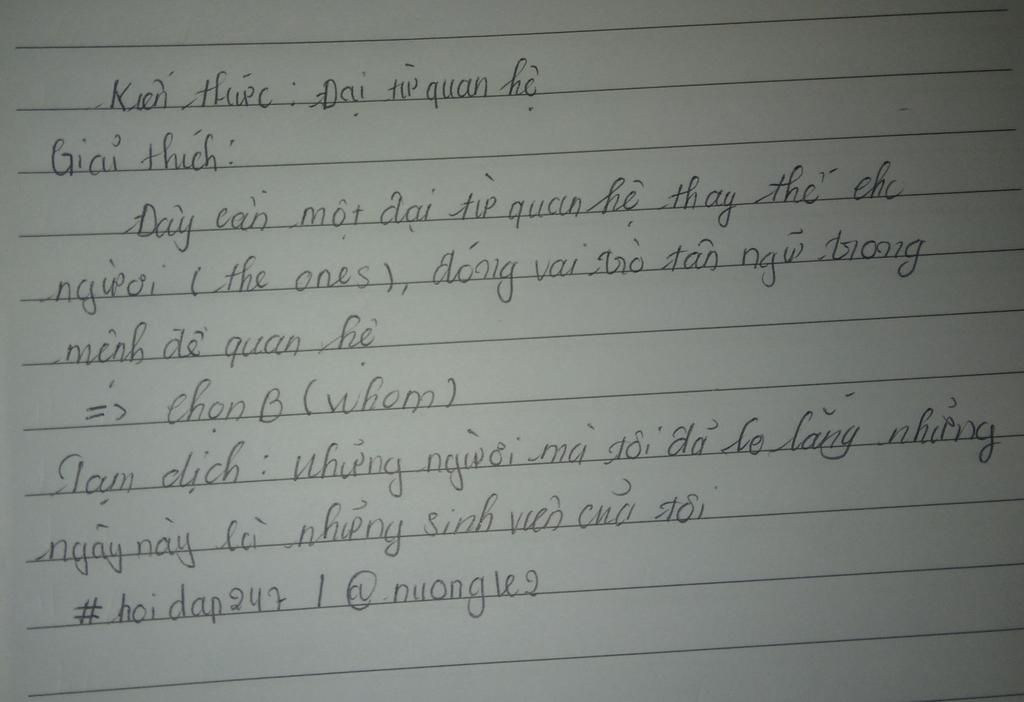 Kiến thức: Đại từ quan hệ
Giải thích:
Đây cần một đại từ quan hệ thay thế cho
người (the ones), đóng vai trò tân ngữ trong
mệnh đề quan hệ
=> chọn B (whom)
Tạm dịch: Những người mà tôi đã lo lắng những
ngày này là những sinh viên của tôi
#hoidap247 / @nuongle2